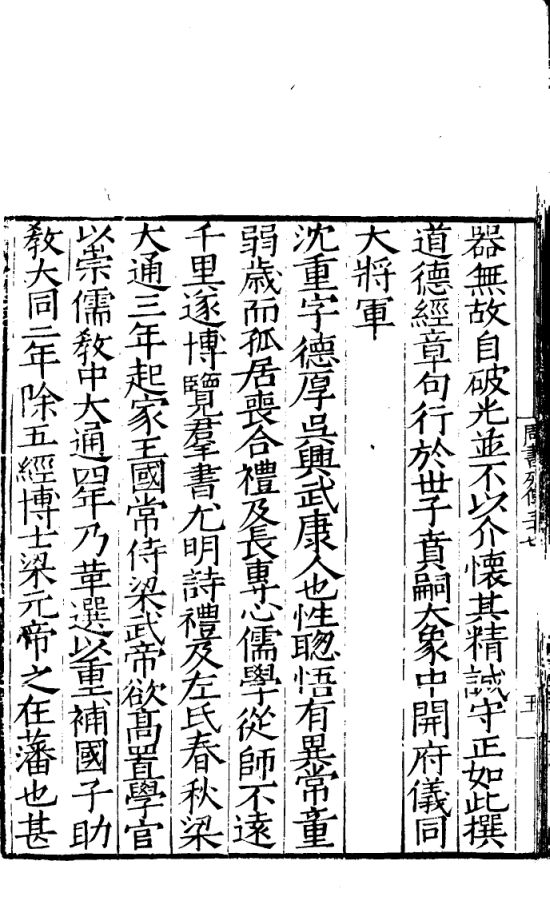 器無故自破光並不以介懷其精誠守正如此撰
道德經章句行於世子賁嗣大象中開府儀同
大將軍
沈重字德厚吳興武康人也性聦悟有異常童
弱歳而孤居喪合禮及長專心儒學從師不遠
千里遂博覽羣書尤明詩禮及左氏春秋梁
大通三年起家王國常侍梁武帝欲髙置學官
以崇儒敎中大通四年乃革選以重補國子助
敎大同二年除五經博士梁元帝之在藩也甚